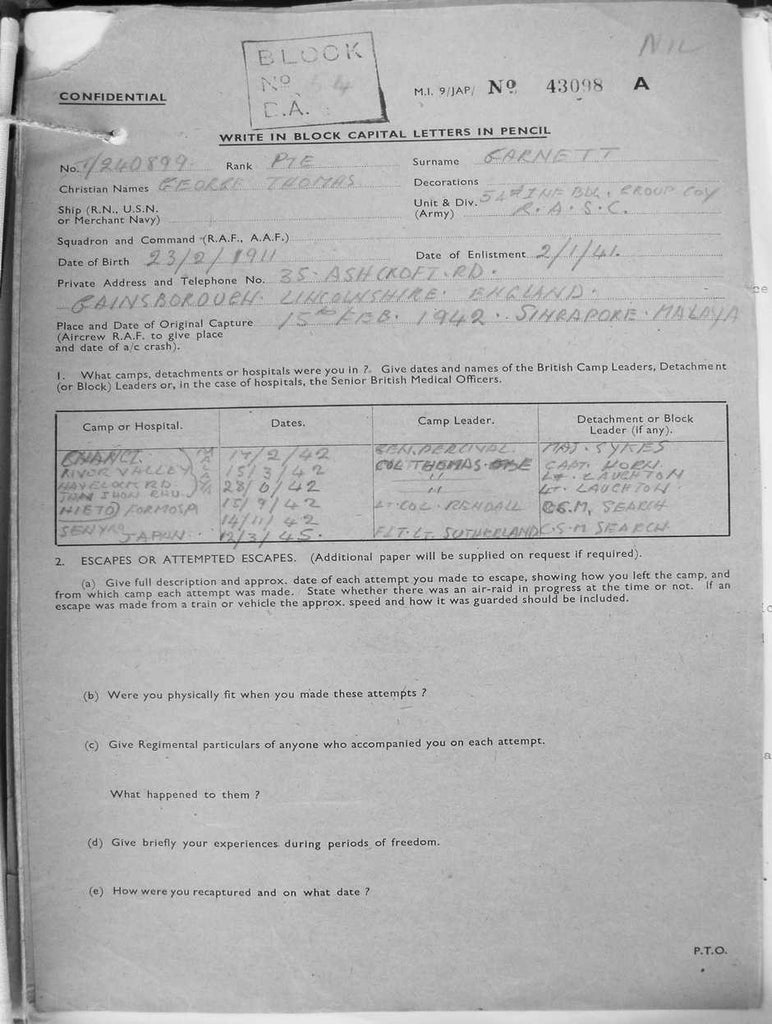 NIL
BLOCK
Nº 4
C.A.
CONFIDENTIAL
M.I. 9/JAP/ Nº 43098 A
WRITE IN BLOCK CAPITAL LETTERS IN PENCIL
No. T/240899 Rank PTE Surname GARNETT
Christian Names GEORGE THOMAS Decorations
Ship (R.N., U.S.N. or Merchant Navy) Unit & Div. (Army) 54th INF BDE. GROUP COY R.A.S.C.
Squadron and Command (R.A.F., A.A.F.)
Date of Birth 23/2/1911 Date of Enlistment 2/1/41.
Private Address and Telephone No. 35. ASHCROFT. RD.
GAINSBOROUGH. LINCOLNSHIRE. ENGLAND.
Place and Date of Original Capture 15th FEB. 1942. SINGAPORE. MALAYA
(Aircrew R.A.F. to give place
and date of a/c crash).
1. What camps, detachments or hospitals were you in ? Give dates and names of the British Camp Leaders, Detachment
(or Block) Leaders or, in the case of hospitals, the Senior British Medical Officers.
Camp or Hospital. Dates. Camp Leader. Detachment or Block Leader (if any).
CHANGI. 17/2/42 GEN. PERCIVAL MAJ. SYKES
RIVER VALLEY 15/3/42 COL THOMAS CAPT. HORN
HAVELOCK RD. 28/6/42 " LT. LAUGHTON
" LT. LAUGHTON
FORMOSA 15/9/42 LT. COL. RENDALL C.S.M, SEARCH
14/11/42
JAPAN. 12/3/45. FLT. LT. SUTHERLAND C.S.M SEARCH
2. ESCAPES OR ATTEMPTED ESCAPES. (Additional paper will be supplied on request if required).
(a) Give full description and approx. date of each attempt you made to escape, showing how you left the camp, and
from which camp each attempt was made. State whether there was an air-raid in progress at the time or not. If an
escape was made from a train or vehicle the approx. speed and how it was guarded should be included.
(b) Were you physically fit when you made these attempts ?
(c) Give Regimental particulars of anyone who accompanied you on each attempt.
What happened to them ?
(d) Give briefly your experiences during periods of freedom.
(e) How were you recaptured and on what date ?
P.T.O.